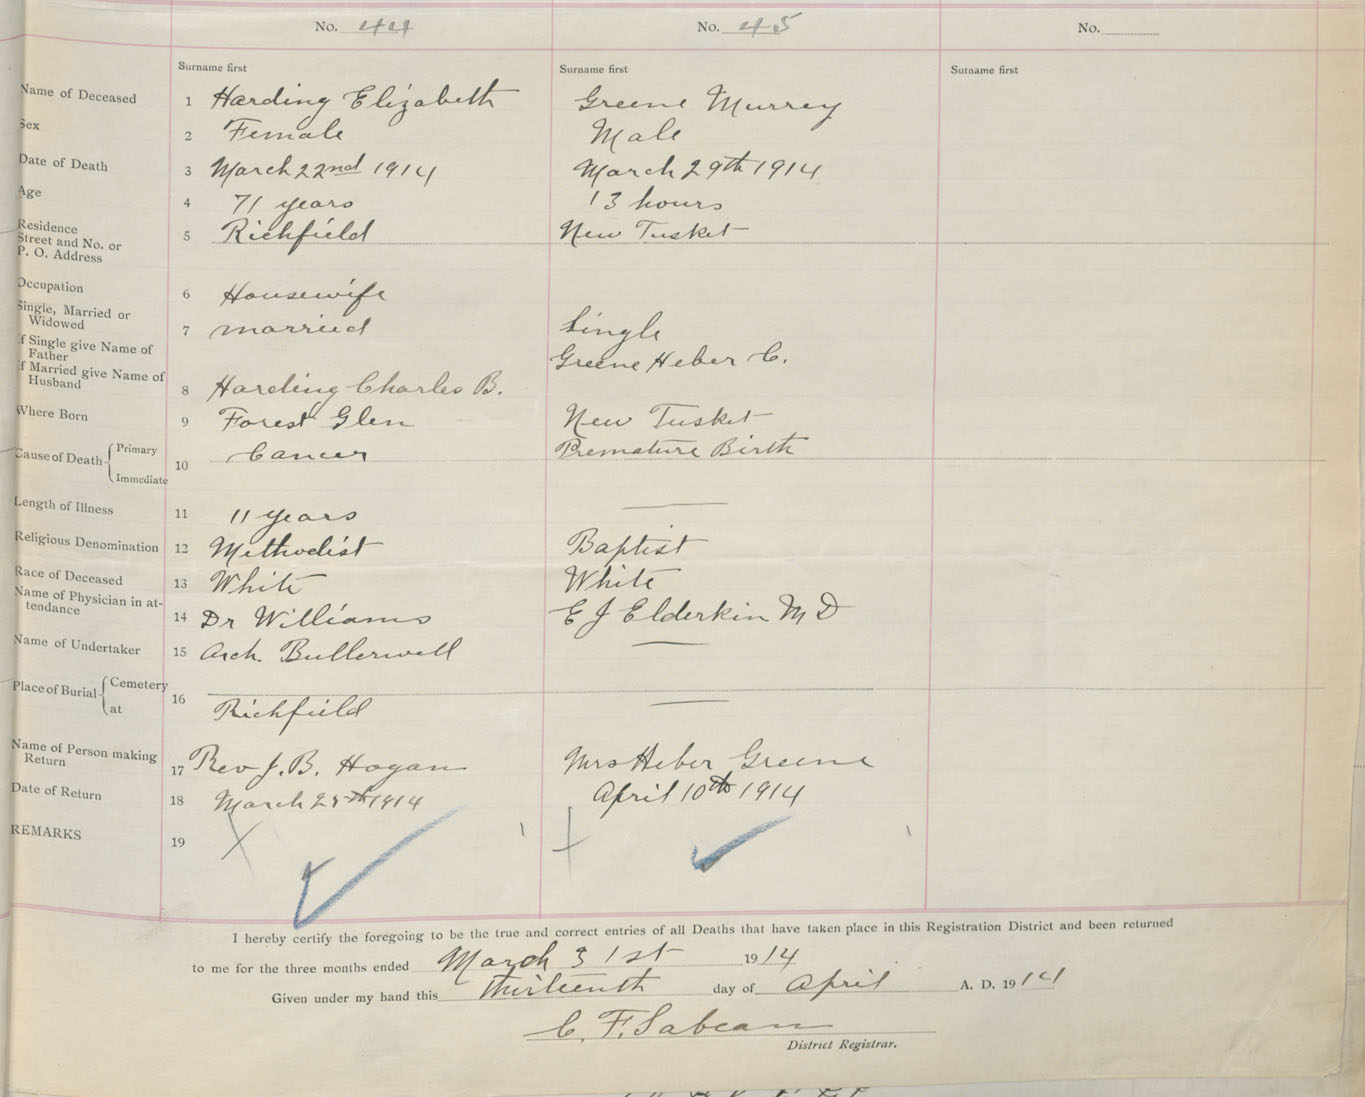 No. 44 No. 45 No.
Surname first Surname first Surname first
Name of Deceased 1 Harding Elizabeth Greene Murrey
Sex 2 Female Male
Date of Death 3 March 22nd 1914 March 29th 1914
Age 4 71 years 13 hours
Residence
Street and No. or
P. O. Address 5 Richfield New Tusket
Occupation 6 Housewife
Single, Married or
Widowed 7 married Single
If Single give Name of
Father Greene Heber C.
If Married give Name of
Husband 8 Harding Charles B.
Where Born 9 Forest Glen New Tusket
Cause of Death Primary 10 Cancer Premature Birth
Immediate
Length of Illness 11 11 years —
Religious Denomination 12 Methodist Baptist
Race of Deceased 13 White White
Name of Physician in at-
tendance 14 Dr Williams E J Elderkin M D
Name of Undertaker 15 Arch. Bullerwell —
Place of Burial Cemetery 16
at Richfield —
Name of Person making
Return 17 Rev J. B. Hogan Mrs Heber Greene
Date of Return 18 March 1914 April 10th 1914
REMARKS 19
I hereby certify the foregoing to be the true and correct entries of all Deaths that have taken place in this Registration District and been returned
to me for the three months ended March 31st 1914
Given under my hand this thirteenth day of April A. D. 1914
C. F. Sabean
District Registrar.